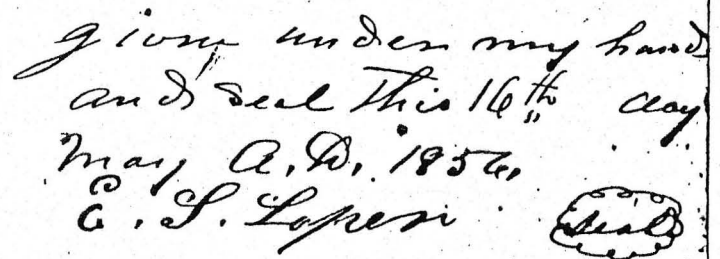 given under my hand
and seal this 16th day
May A.D. 1856.
E. S. Lopen
seal